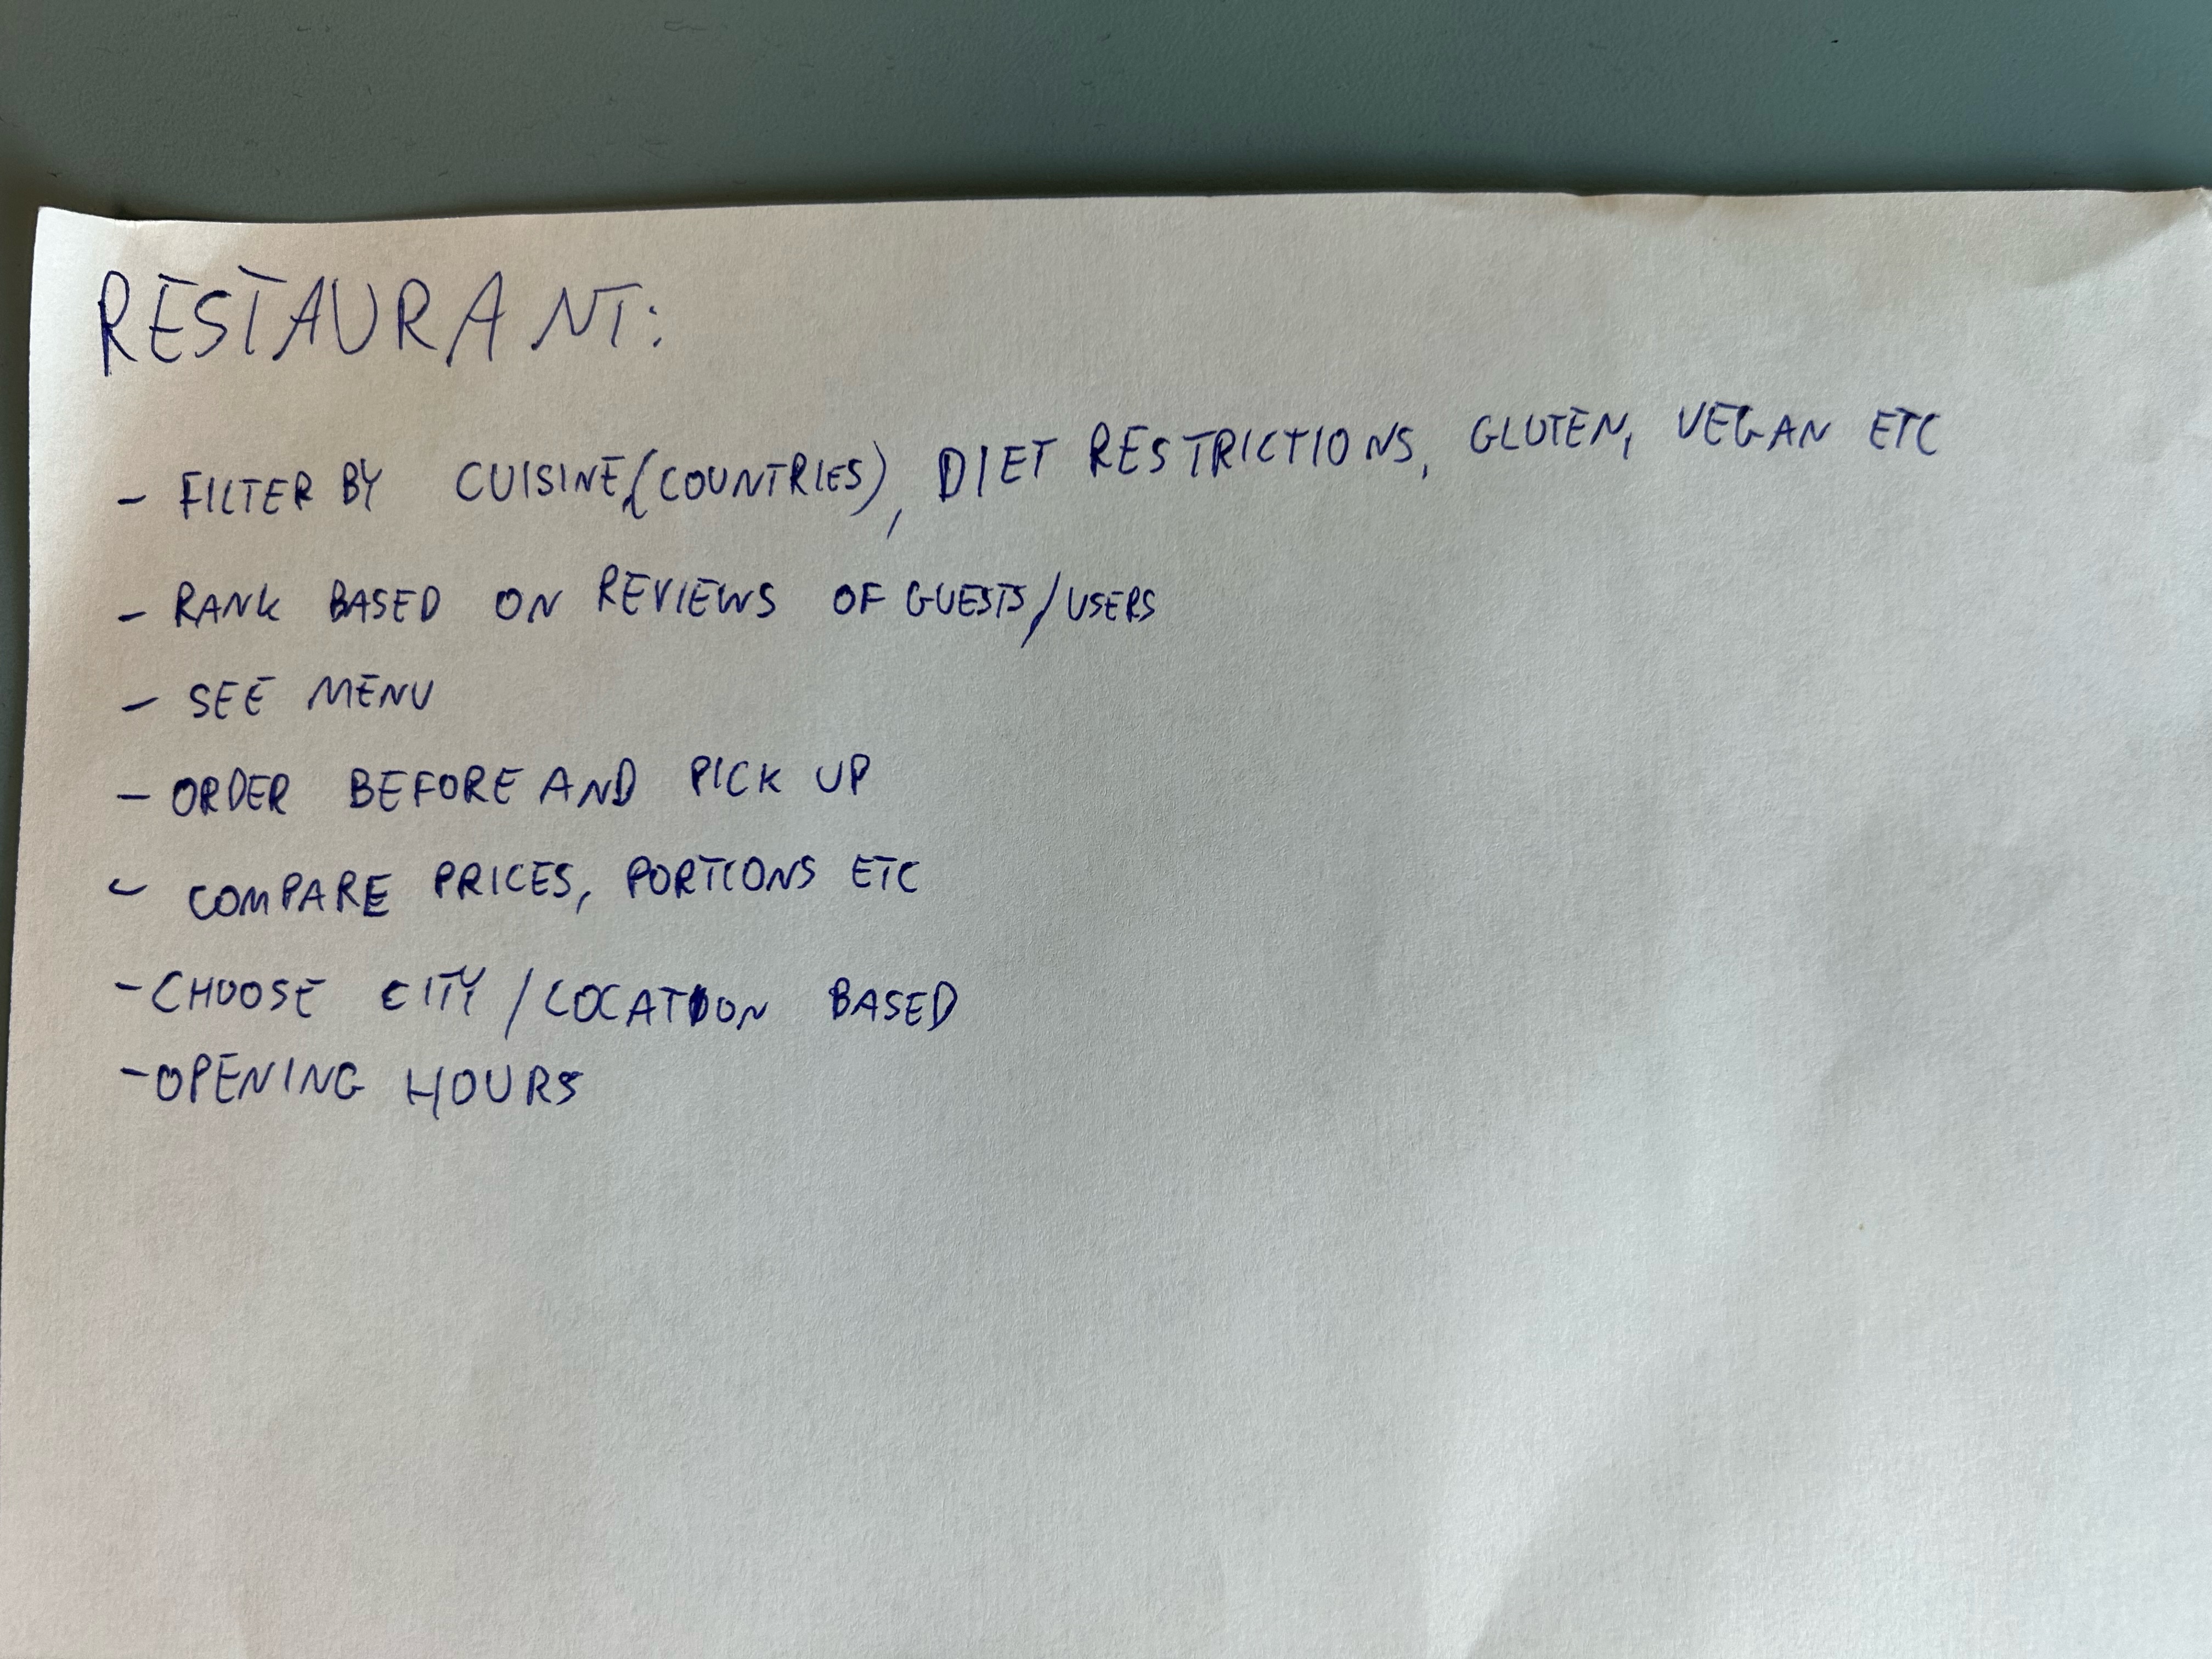 RESTAURANT:
- FILTER BY CUISINE (COUNTRIES), DIET RESTRICTIONS, GLUTEN, VEGAN ETC
- RANK BASED ON REVIEWS OF GUESTS/USERS
- SEE MENU
- ORDER BEFORE AND PICK UP
- COMPARE PRICES, PORTIONS ETC
- CHOOSE CITY/LOCATION BASED
- OPENING HOURS